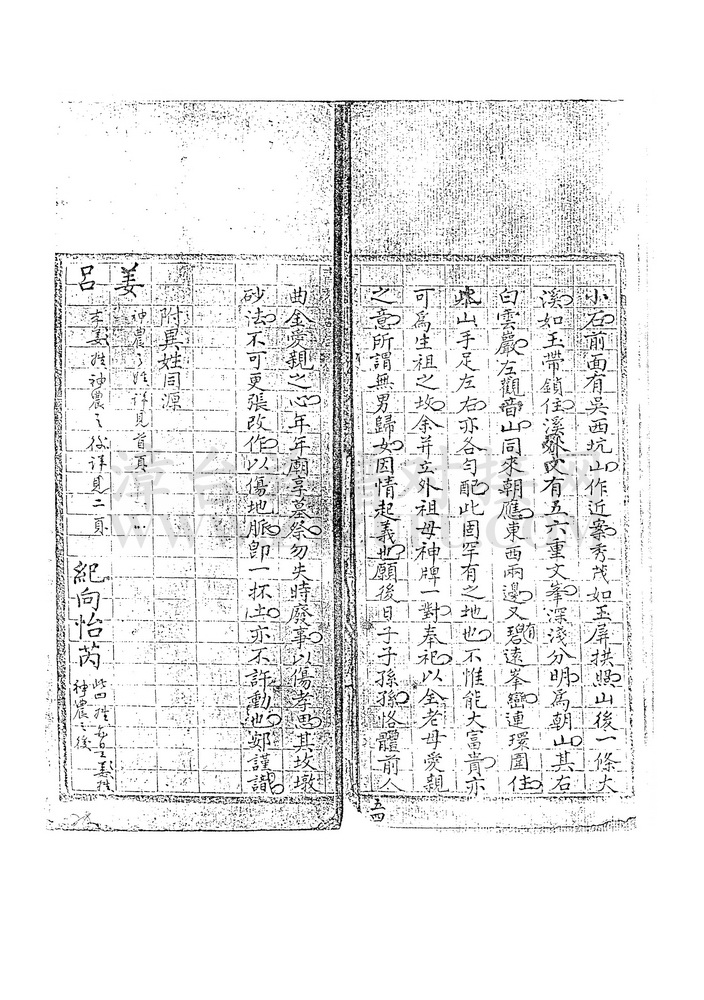 小石前面有吳西坑山作近案秀茂如玉屏拱照山後一條大
溪如玉帶鎖住溪外又有五六重文峯深淺分明為朝山其右
白雲巖左觀音山同來朝應東西兩邊又有碧遠峯巒連環圍住
山手足左右亦各勻配此固罕有之地也不惟能大富貴亦
可為生祖之故余并立外祖母神牌一對奉祀以全老母愛親
之意所謂無男歸女因情起義也願後日子子孫孫恪體前人
五四
曲全愛親之心年年廟享墓祭勿失時廢事以傷孝思其坟墩
砂法不可更張改作以傷地脈即一抔土亦不許動也鄭謹識
附異姓同源
姜 神農之姓詳見首頁
呂 本姜姓神農之後詳見二頁
紀向怡芮 此四姓皆姜姓神農之後